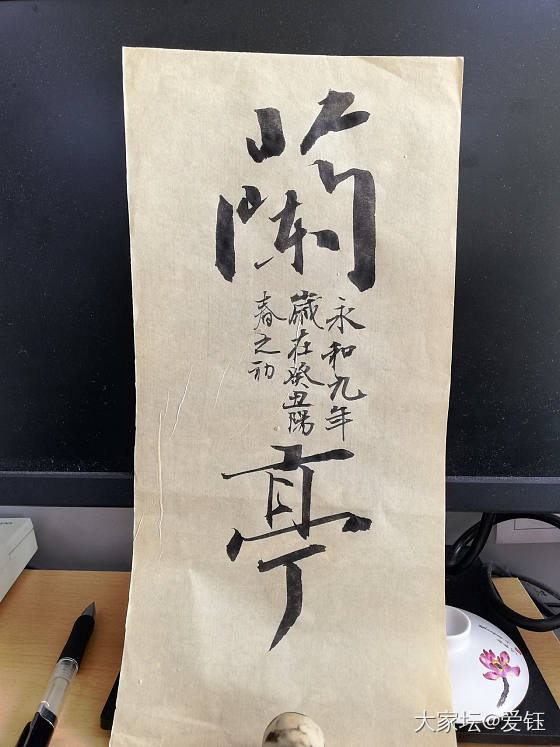 蘭
永和九年
歲在癸丑陽
春之初
亭
大家坛@爱钰